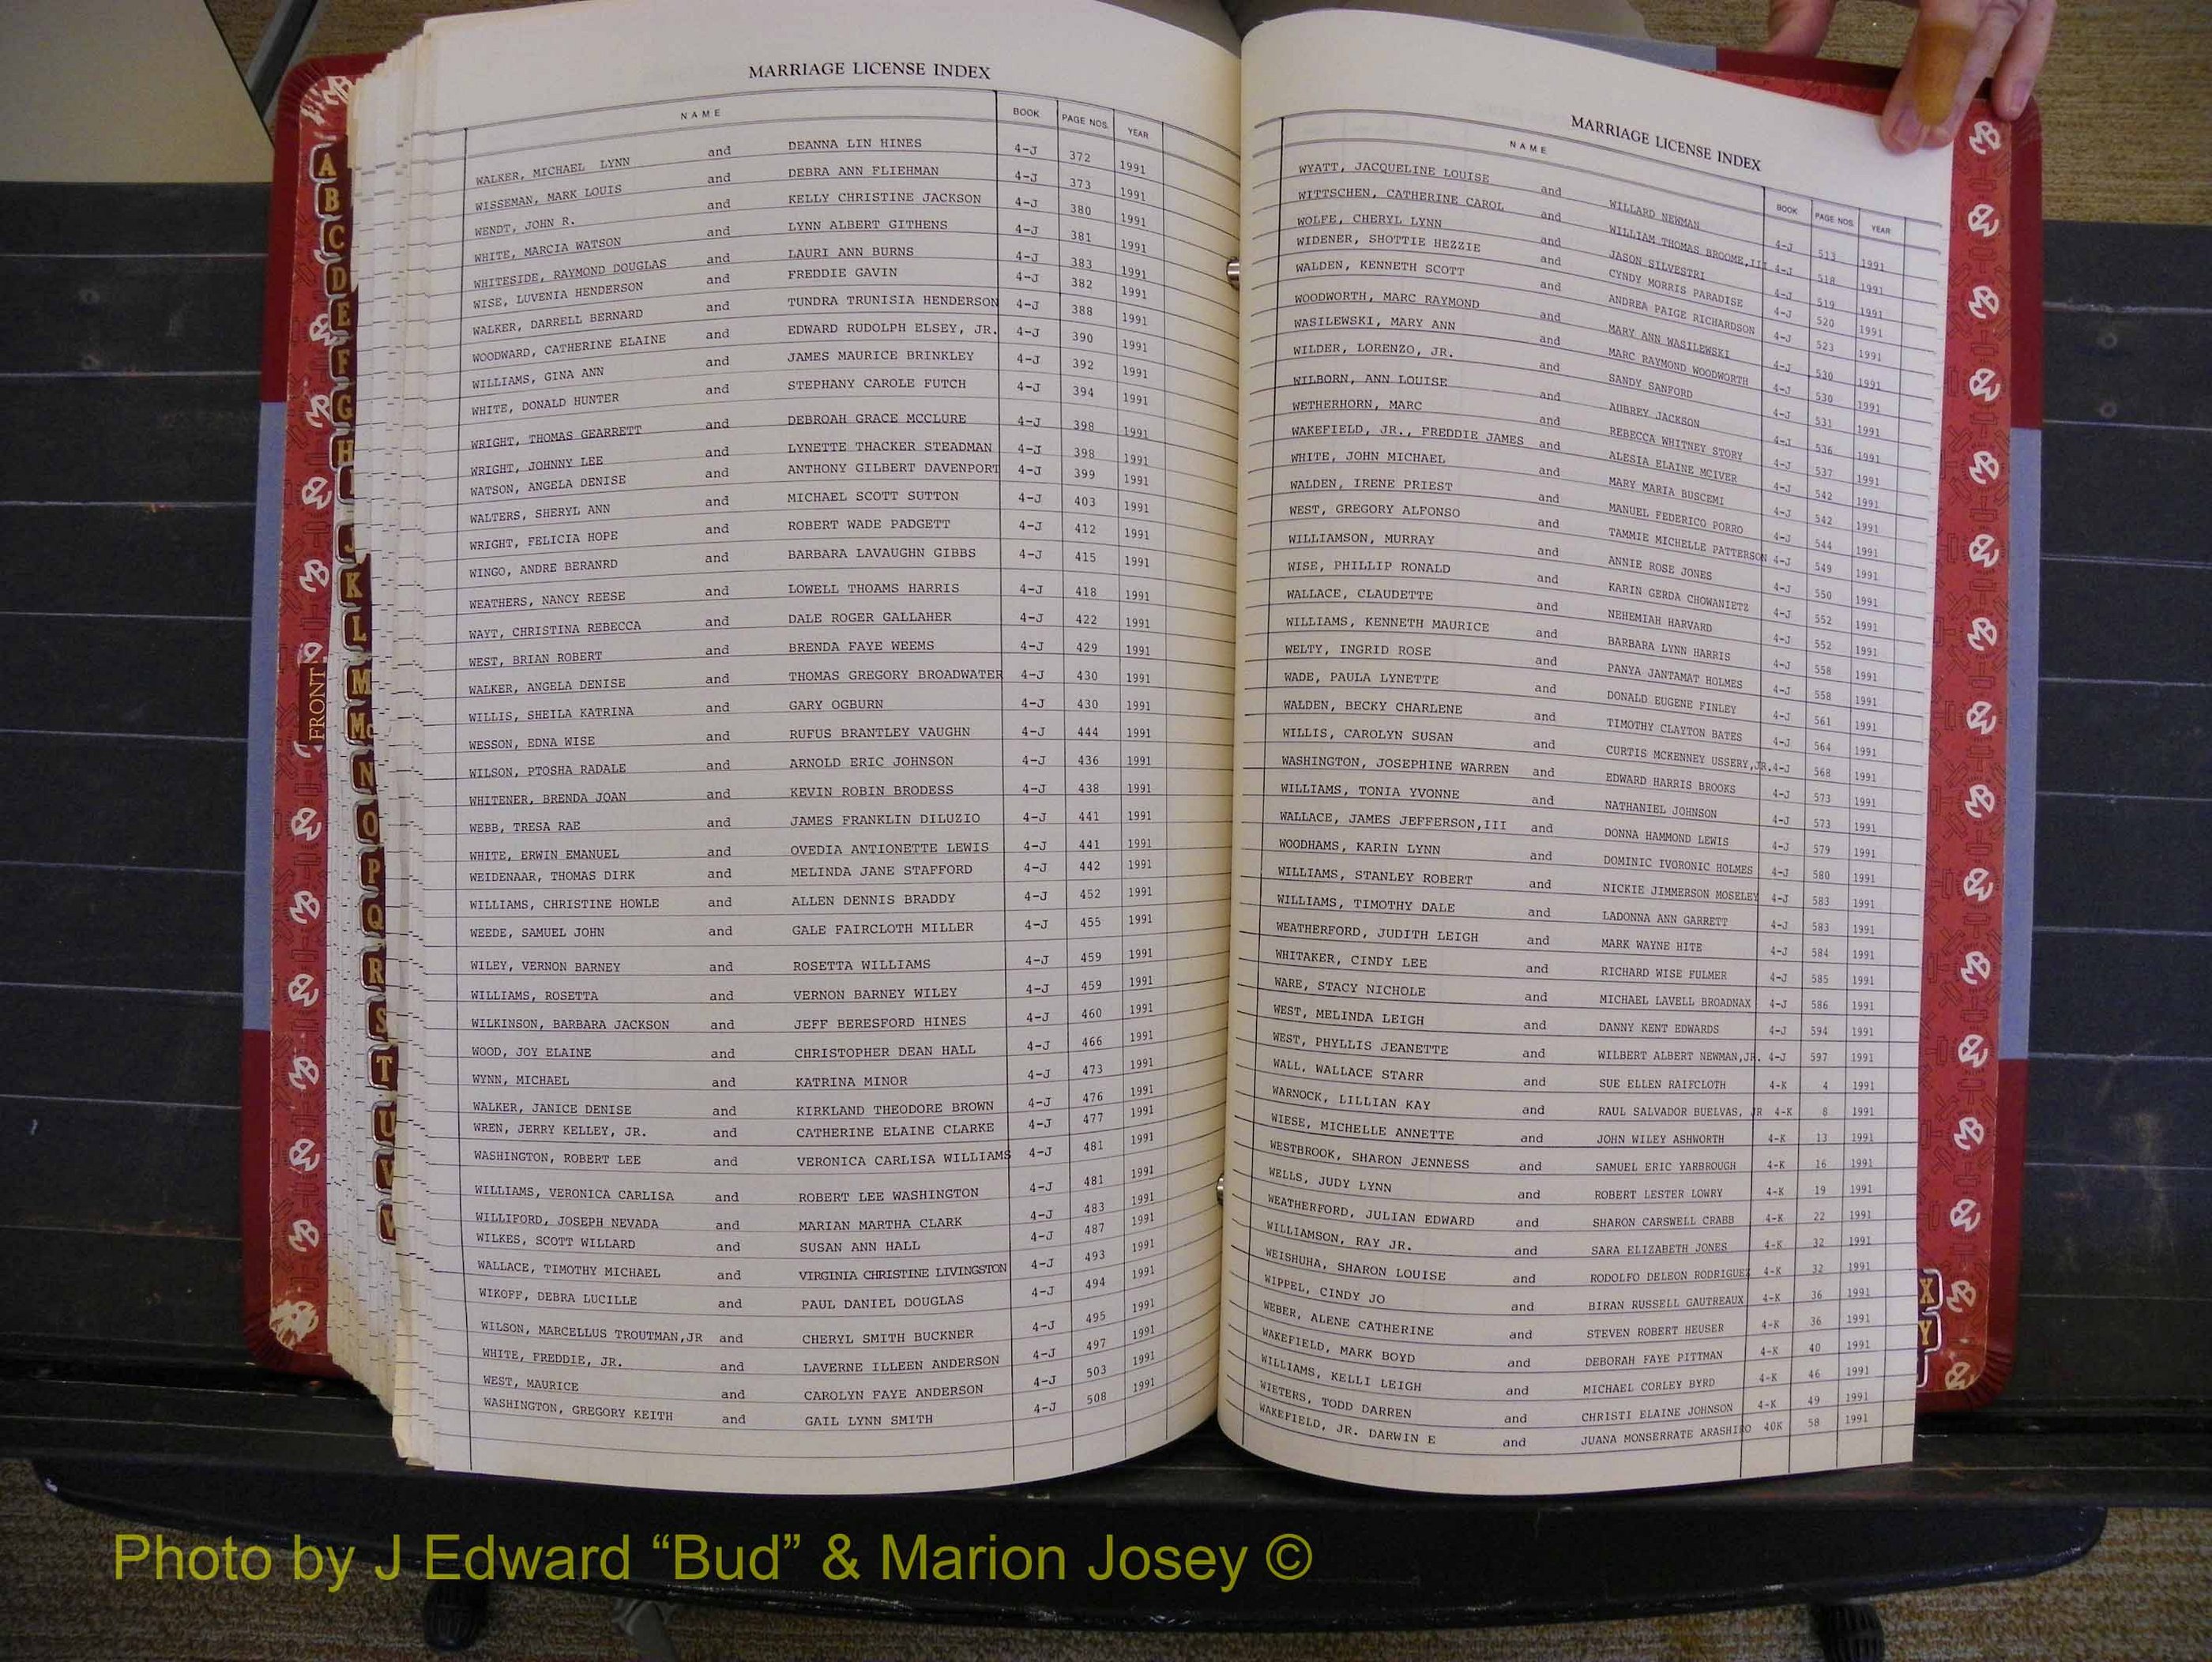 MARRIAGE LICENSE INDEX
NAME BOOK PAGE NOS. YEAR
WALKER, MICHAEL LYNN and DEANNA LIN HINES 4-J 372 1991
WISSEMAN, MARK LOUIS and DEBRA ANN FLIEHMAN 4-J 373 1991
WENDT, JOHN R. and KELLY CHRISTINE JACKSON 4-J 380 1991
WHITE, MARCIA WATSON and LYNN ALBERT GITHENS 4-J 381 1991
WHITESIDE, RAYMOND DOUGLAS and LAURI ANN BURNS 4-J 383 1991
WISE, LUVENIA HENDERSON and FREDDIE GAVIN 4-J 382 1991
WALKER, DARRELL BERNARD and TUNDRA TRUNISIA HENDERSON 4-J 388 1991
WOODWARD, CATHERINE ELAINE and EDWARD RUDOLPH ELSEY, JR. 4-J 390 1991
WILLIAMS, GINA ANN and JAMES MAURICE BRINKLEY 4-J 392 1991
WHITE, DONALD HUNTER and STEPHANY CAROLE FUTCH 4-J 394 1991
WRIGHT, THOMAS GEARRETT and DEBROAH GRACE MCCLURE 4-J 398 1991
WRIGHT, JOHNNY LEE and LYNETTE THACKER STEADMAN 4-J 398 1991
WATSON, ANGELA DENISE and ANTHONY GILBERT DAVENPORT 4-J 399 1991
WALTERS, SHERYL ANN and MICHAEL SCOTT SUTTON 4-J 403 1991
WRIGHT, FELICIA HOPE and ROBERT WADE PADGETT 4-J 412 1991
WINGO, ANDRE BERANRD and BARBARA LAVAUGHN GIBBS 4-J 415 1991
WEATHERS, NANCY REESE and LOWELL THOAMS HARRIS 4-J 418 1991
WAYT, CHRISTINA REBECCA and DALE ROGER GALLAHER 4-J 422 1991
WEST, BRIAN ROBERT and BRENDA FAYE WEEMS 4-J 429 1991
WALKER, ANGELA DENISE and THOMAS GREGORY BROADWATER 4-J 430 1991
WILLIS, SHEILA KATRINA and GARY OGBURN 4-J 430 1991
WESSON, EDNA WISE and RUFUS BRANTLEY VAUGHN 4-J 444 1991
WILSON, PTOSHA RADALE and ARNOLD ERIC JOHNSON 4-J 436 1991
WHITENER, BRENDA JOAN and KEVIN ROBIN BRODESS 4-J 438 1991
WEBB, TRESA RAE and JAMES FRANKLIN DILUZIO 4-J 441 1991
WHITE, ERWIN EMANUEL and OVEDIA ANTIONETTE LEWIS 4-J 441 1991
WEIDENAAR, THOMAS DIRK and MELINDA JANE STAFFORD 4-J 442 1991
WILLIAMS, CHRISTINE HOWLE and ALLEN DENNIS BRADDY 4-J 452 1991
WEEDE, SAMUEL JOHN and GALE FAIRCLOTH MILLER 4-J 455 1991
WILEY, VERNON BARNEY and ROSETTA WILLIAMS 4-J 459 1991
WILLIAMS, ROSETTA and VERNON BARNEY WILEY 4-J 459 1991
WILKINSON, BARBARA JACKSON and JEFF BERESFORD HINES 4-J 460 1991
WOOD, JOY ELAINE and CHRISTOPHER DEAN HALL 4-J 466 1991
WYNN, MICHAEL and KATRINA MINOR 4-J 473 1991
WALKER, JANICE DENISE and KIRKLAND THEODORE BROWN 4-J 476 1991
WREN, JERRY KELLEY, JR. and CATHERINE ELAINE CLARKE 4-J 477 1991
WASHINGTON, ROBERT LEE and VERONICA CARLISA WILLIAMS 4-J 481 1991
WILLIAMS, VERONICA CARLISA and ROBERT LEE WASHINGTON 4-J 481 1991
WILLIFORD, JOSEPH NEVADA and MARIAN MARTHA CLARK 4-J 483 1991
WILKES, SCOTT WILLARD and SUSAN ANN HALL 4-J 487 1991
WALLACE, TIMOTHY MICHAEL and VIRGINIA CHRISTINE LIVINGSTON 4-J 493 1991
WIKOFF, DEBRA LUCILLE and PAUL DANIEL DOUGLAS 4-J 494 1991
WILSON, MARCELLUS TROUTMAN,JR and CHERYL SMITH BUCKNER 4-J 495 1991
WHITE, FREDDIE, JR. and LAVERNE ILLEEN ANDERSON 4-J 497 1991
WEST, MAURICE and CAROLYN FAYE ANDERSON 4-J 503 1991
WASHINGTON, GREGORY KEITH and GAIL LYNN SMITH 4-J 508 1991
MARRIAGE LICENSE INDEX
NAME BOOK PAGE NOS. YEAR
WYATT, JACQUELINE LOUISE and WILLARD NEWMAN 4-J 513 1991
WITTSCHEN, CATHERINE CAROL and WILLIAM THOMAS BROOME,III 4-J 518 1991
WOLFE, CHERYL LYNN and JASON SILVESTRI 4-J 519 1991
WIDENER, SHOTTIE HEZZIE and CYNDY MORRIS PARADISE 4-J 520 1991
WALDEN, KENNETH SCOTT and ANDREA PAIGE RICHARDSON 4-J 523 1991
WOODWORTH, MARC RAYMOND and MARY ANN WASILEWSKI 4-J 530 1991
WASILEWSKI, MARY ANN and MARC RAYMOND WOODWORTH 4-J 530 1991
WILDER, LORENZO, JR. and SANDY SANFORD 4-J 531 1991
WILBORN, ANN LOUISE and AUBREY JACKSON 4-J 536 1991
WETHERHORN, MARC and REBECCA WHITNEY STORY 4-J 537 1991
WAKEFIELD, JR., FREDDIE JAMES and ALESIA ELAINE MCIVER 4-J 542 1991
WHITE, JOHN MICHAEL and MARY MARIA BUSCEMI 4-J 542 1991
WALDEN, IRENE PRIEST and MANUEL FEDERICO PORRO 4-J 544 1991
WEST, GREGORY ALFONSO and TAMMIE MICHELLE PATTERSON 4-J 549 1991
WILLIAMSON, MURRAY and ANNIE ROSE JONES 4-J 550 1991
WISE, PHILLIP RONALD and KARIN GERDA CHOWANIETZ 4-J 552 1991
WALLACE, CLAUDETTE and NEHEMIAH HARVARD 4-J 552 1991
WILLIAMS, KENNETH MAURICE and BARBARA LYNN HARRIS 4-J 558 1991
WELTY, INGRID ROSE and PANYA JANTAMAT HOLMES 4-J 558 1991
WADE, PAULA LYNETTE and DONALD EUGENE FINLEY 4-J 561 1991
WALDEN, BECKY CHARLENE and TIMOTHY CLAYTON BATES 4-J 564 1991
WILLIS, CAROLYN SUSAN and CURTIS MCKENNEY USSERY,JR. 4-J 568 1991
WASHINGTON, JOSEPHINE WARREN and EDWARD HARRIS BROOKS 4-J 573 1991
WILLIAMS, TONIA YVONNE and NATHANIEL JOHNSON 4-J 573 1991
WALLACE, JAMES JEFFERSON,III and DONNA HAMMOND LEWIS 4-J 579 1991
WOODHAMS, KARIN LYNN and DOMINIC IVORONIC HOLMES 4-J 580 1991
WILLIAMS, STANLEY ROBERT and NICKIE JIMMERSON MOSELEY 4-J 583 1991
WILLIAMS, TIMOTHY DALE and LADONNA ANN GARRETT 4-J 583 1991
WEATHERFORD, JUDITH LEIGH and MARK WAYNE HITE 4-J 584 1991
WHITAKER, CINDY LEE and RICHARD WISE FULMER 4-J 585 1991
WARE, STACY NICHOLE and MICHAEL LAVELL BROADNAX 4-J 586 1991
WEST, MELINDA LEIGH and DANNY KENT EDWARDS 4-J 594 1991
WEST, PHYLLIS JEANETTE and WILBERT ALBERT NEWMAN,JR. 4-J 597 1991
WALL, WALLACE STARR and SUE ELLEN RAIFCLOTH 4-K 4 1991
WARNOCK, LILLIAN KAY and RAUL SALVADOR BUELVAS, JR 4-K 8 1991
WIESE, MICHELLE ANNETTE and JOHN WILEY ASHWORTH 4-K 13 1991
WESTBROOK, SHARON JENNESS and SAMUEL ERIC YARBROUGH 4-K 16 1991
WELLS, JUDY LYNN and ROBERT LESTER LOWRY 4-K 19 1991
WEATHERFORD, JULIAN EDWARD and SHARON CARSWELL CRABB 4-K 22 1991
WILLIAMSON, RAY JR. and SARA ELIZABETH JONES 4-K 32 1991
WEISHUHA, SHARON LOUISE and RODOLFO DELEON RODRIGUEZ 4-K 32 1991
WIPPEL, CINDY JO and BIRAN RUSSELL GAUTREAUX 4-K 36 1991
WEBER, ALENE CATHERINE and STEVEN ROBERT HEUSER 4-K 36 1991
WAKEFIELD, MARK BOYD and DEBORAH FAYE PITTMAN 4-K 40 1991
WILLIAMS, KELLI LEIGH and MICHAEL CORLEY BYRD 4-K 46 1991
WIETERS, TODD DARREN and CHRISTI ELAINE JOHNSON 4-K 49 1991
WAKEFIELD, JR. DARWIN E and JUANA MONSERRATE ARASHIRO 40K 58 1991
A
B
C
D
E
F
G
H
J
K
L
M
Mc
N
O
P
Q
R
S
T
U
V
FRONT
X
Y
Photo by J Edward “Bud” & Marion Josey ©